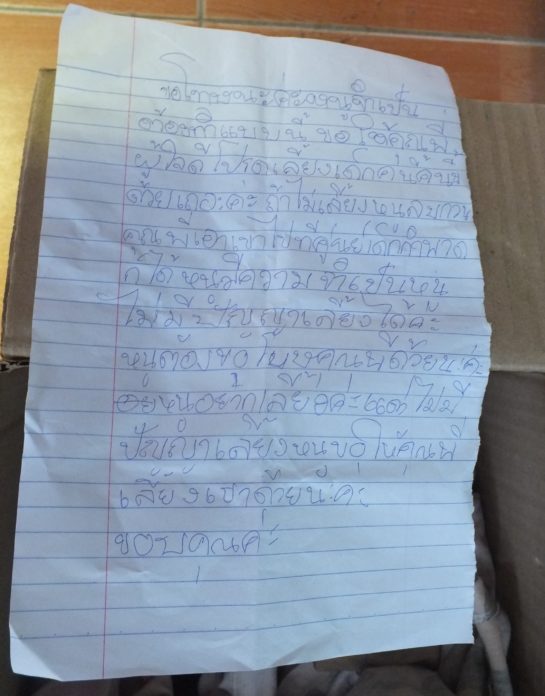 ขอโทษนะค่ะหนูจำเป็น
ต้องทำแบบนี้ ขอให้คุณพี่
ผู้ใจดีโปรดเลี้ยงเด็กคนนี้
ด้วยเถอะค่ะ ถ้าไม่เลี้ยงหนูรบกวน
คุณพี่เอาเขาไปที่ศูนย์เด็กกำพาด
ก็ได้ หนูมีความจำเป็นหนู
ไม่มีปัญญาเลี้ยงได้ค่ะ
หนูต้องขอโทษคุณพี่ด้วยนะค่ะ
หนูอยากเลี้ยงค่ะแต่ไม่มี
ปัญญาเลี้ยงหนูขอให้คุณพี่
เลี้ยงเขาด้วยนะคะ
ขอบคุณค่ะ